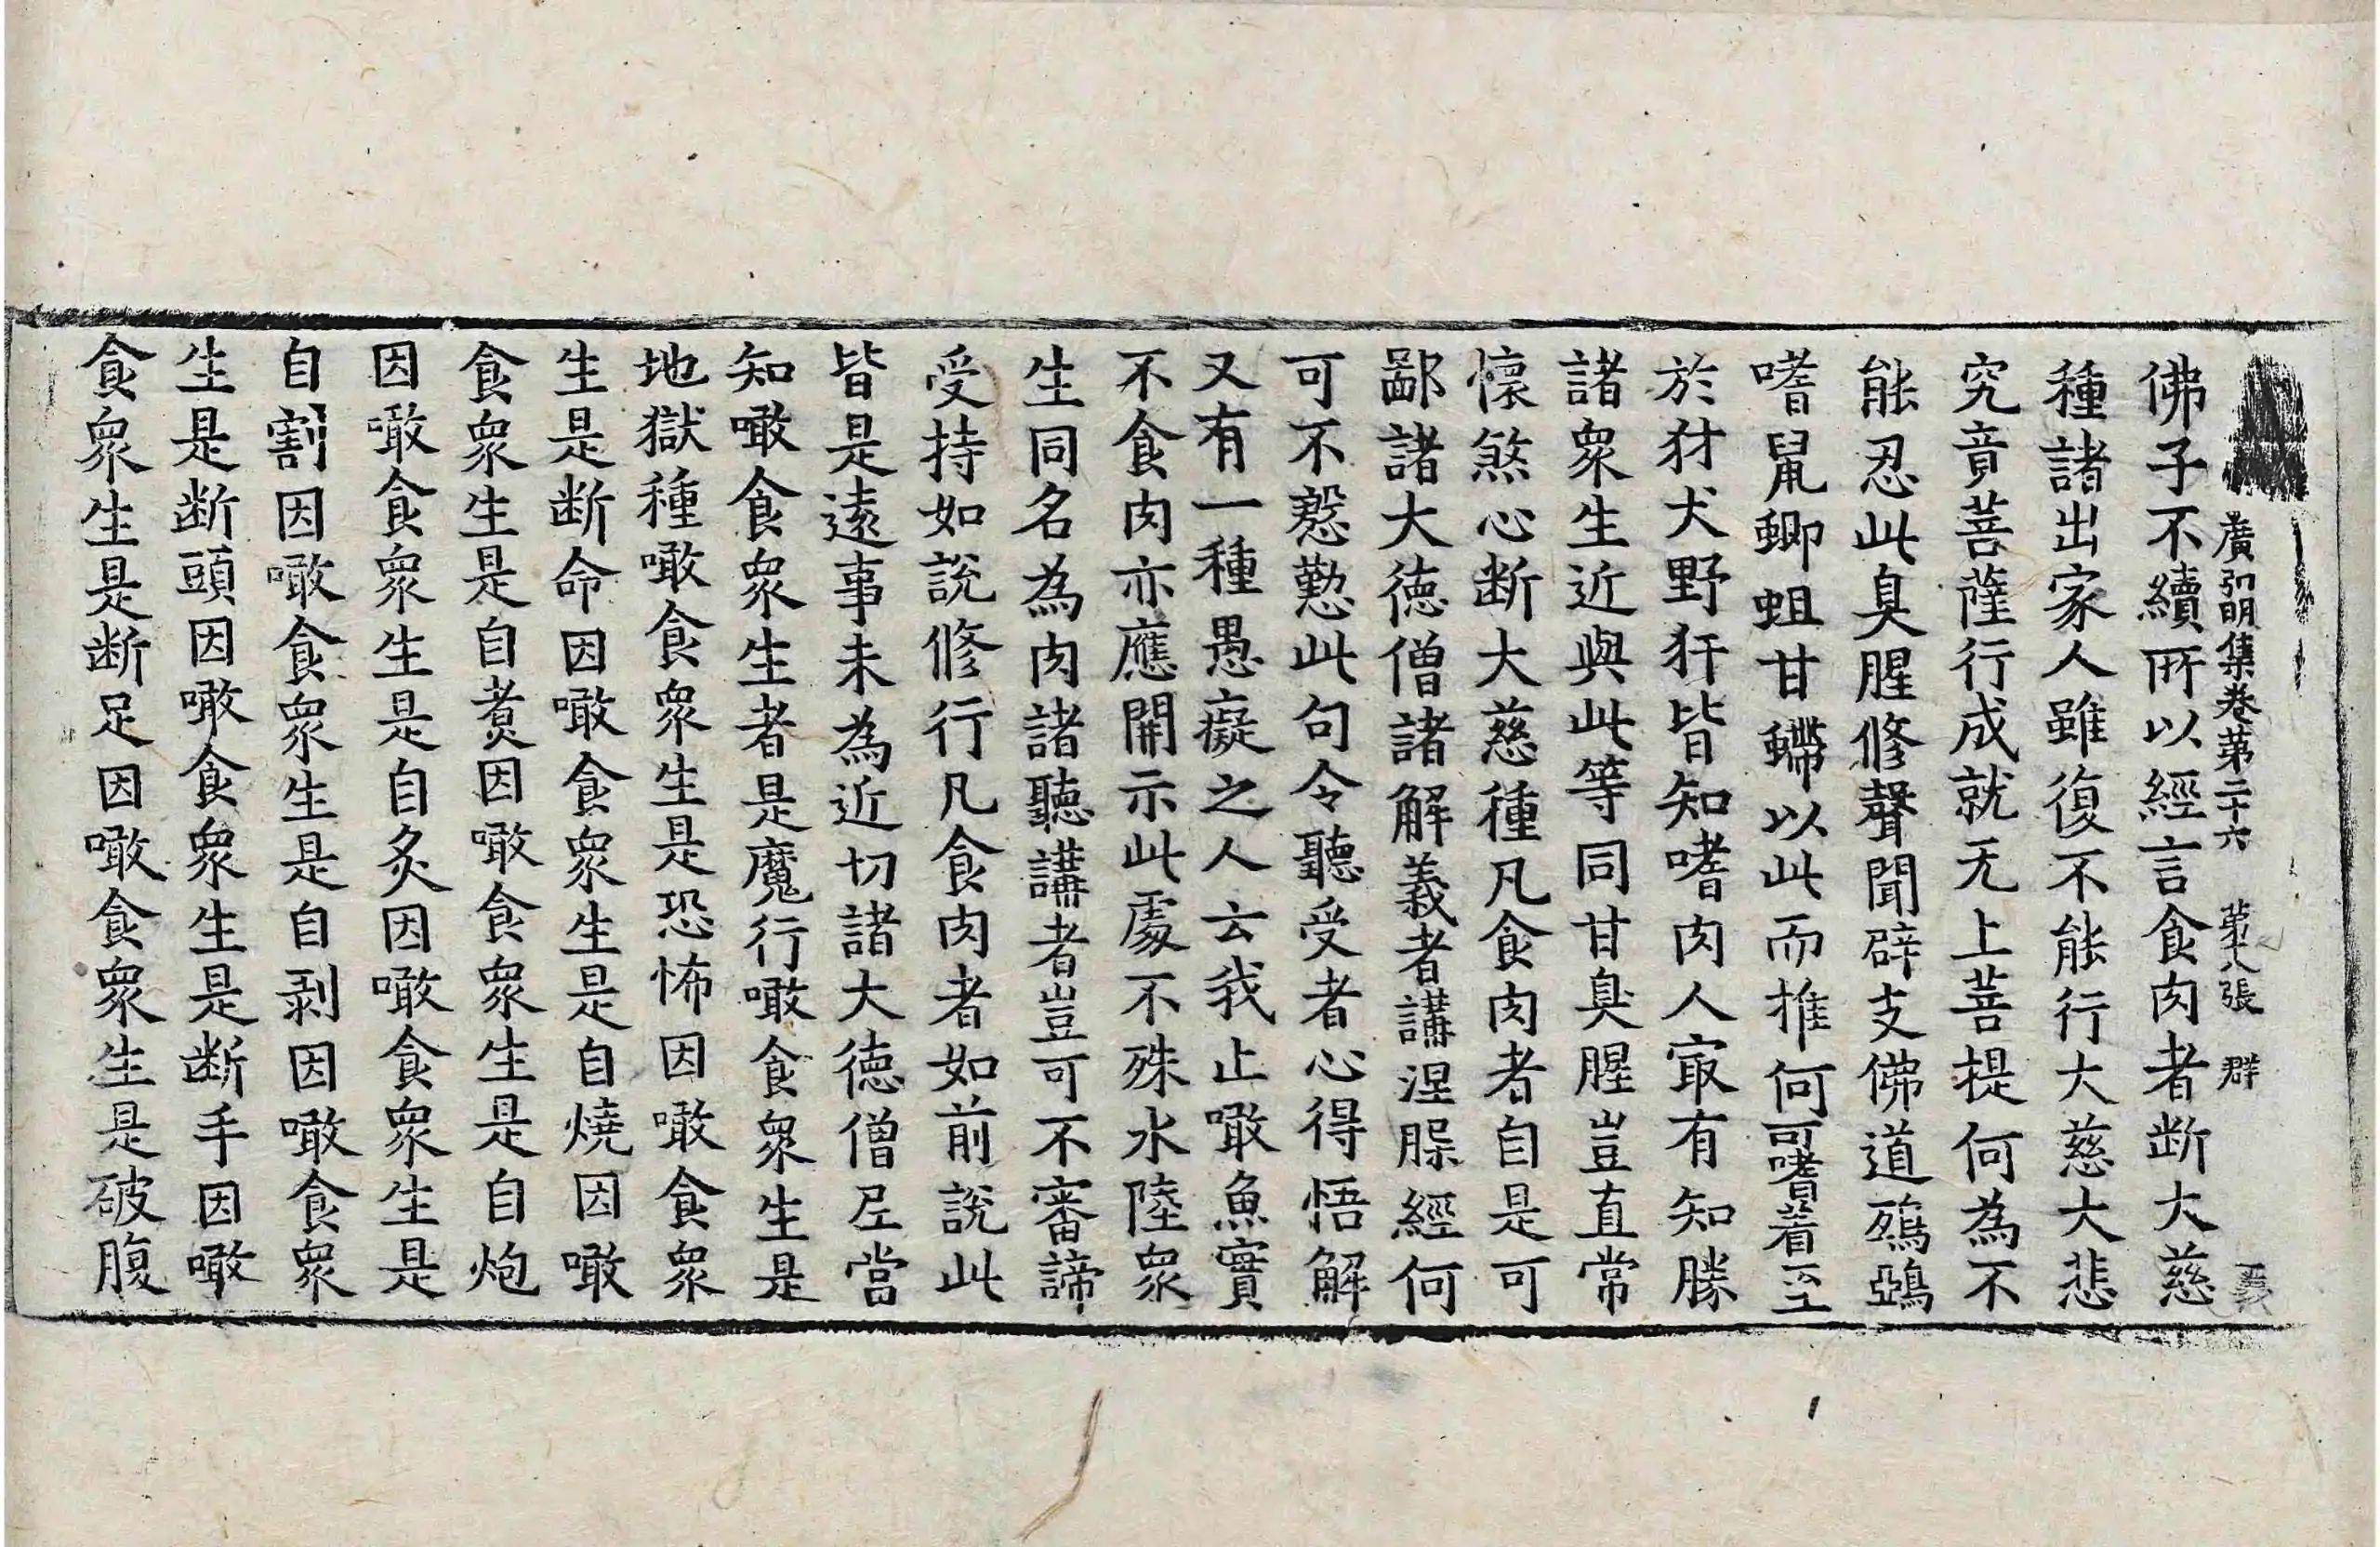 廣弘明集卷第二十六 第八張 群 義
佛子不續所以經言食肉者断大慈
種諸出家人雖復不能行大慈大悲
究竟菩薩行成就无上菩提何為不
能忍此臭腥修聲聞辟支佛道鵄鵶
嗜鼠蝍蛆甘螮以此而推何可嗜著至
於豺犬野犴皆知嗜肉人㝡有知勝
諸衆生近與此等同甘臭腥豈直常
懷煞心断大慈種凡食肉者自是可
鄙諸大徳僧諸解義者講涅槃經何
可不慇懃此句令聽受者心得悟解
又有一種愚癡之人云我止噉魚實
不食肉亦應開示此處不殊水陸衆
生同名為肉諸聽講者豈可不審諦
受持如說修行凡食肉者如前說此
皆是遠事未為近切諸大徳僧尼當
知噉食衆生者是魔行噉食衆生是
地獄種噉食衆生是恐怖因噉食衆
生是断命因噉食衆生是自燒因噉
食衆生是自煮因噉食衆生是自炮
因噉食衆生是自炙因噉食衆生是
自割因噉食衆生是自剥因噉食衆
生是断頭因噉食衆生是断手因噉
食衆生是断足因噉食衆生是破腹